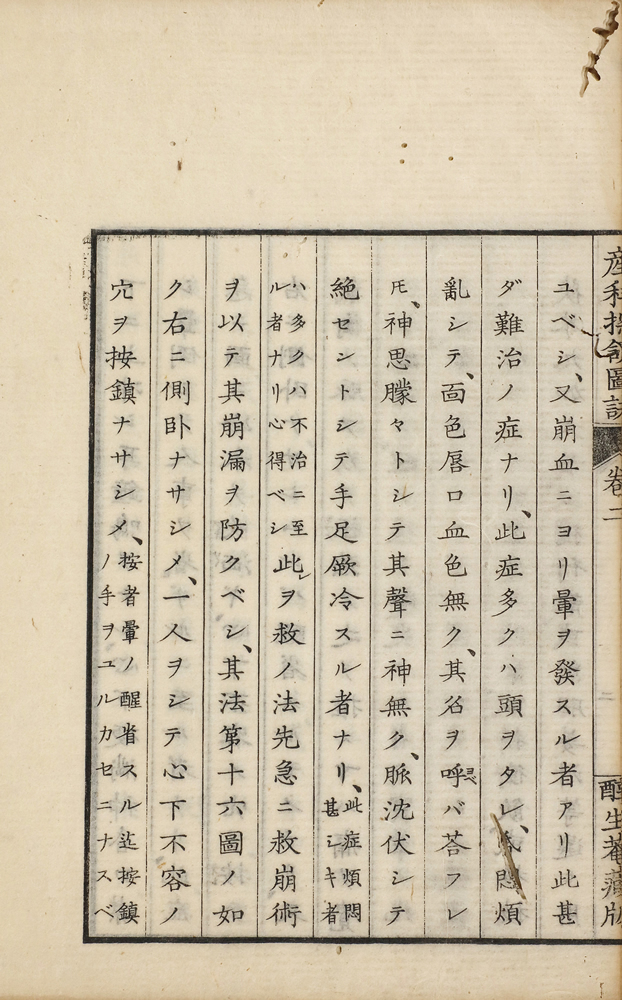 産科探頷圖訣
卷二
二
醇生菴藏版
ユベシ、又崩血ニヨリ暈ヲ發スル者アリ此甚
ダ難治ノ症ナリ、此症多クハ頭ヲタレ、悶煩
亂シテ、面色唇口血色無ク、其名ヲ呼ベバ荅フレ
𪜈、神思朦々トシテ其聲ニ神無ク、脈沈伏シテ
絶セントシテ手足厥冷スル者ナリ、此症煩悶
甚シキ者
ハ多クハ不治ニ至
ル者ナリ心得ベシ
此ヲ救ノ法先急ニ救崩術
ヲ以テ其崩漏ヲ防クベシ、其法第十六圖ノ如
ク右ニ側卧ナサシメ、一人ヲシテ心下不容ノ
穴ヲ按鎮ナサシメ、按者暈ノ醒省スル迄按鎮
ノ手ヲユルカセニナスベ